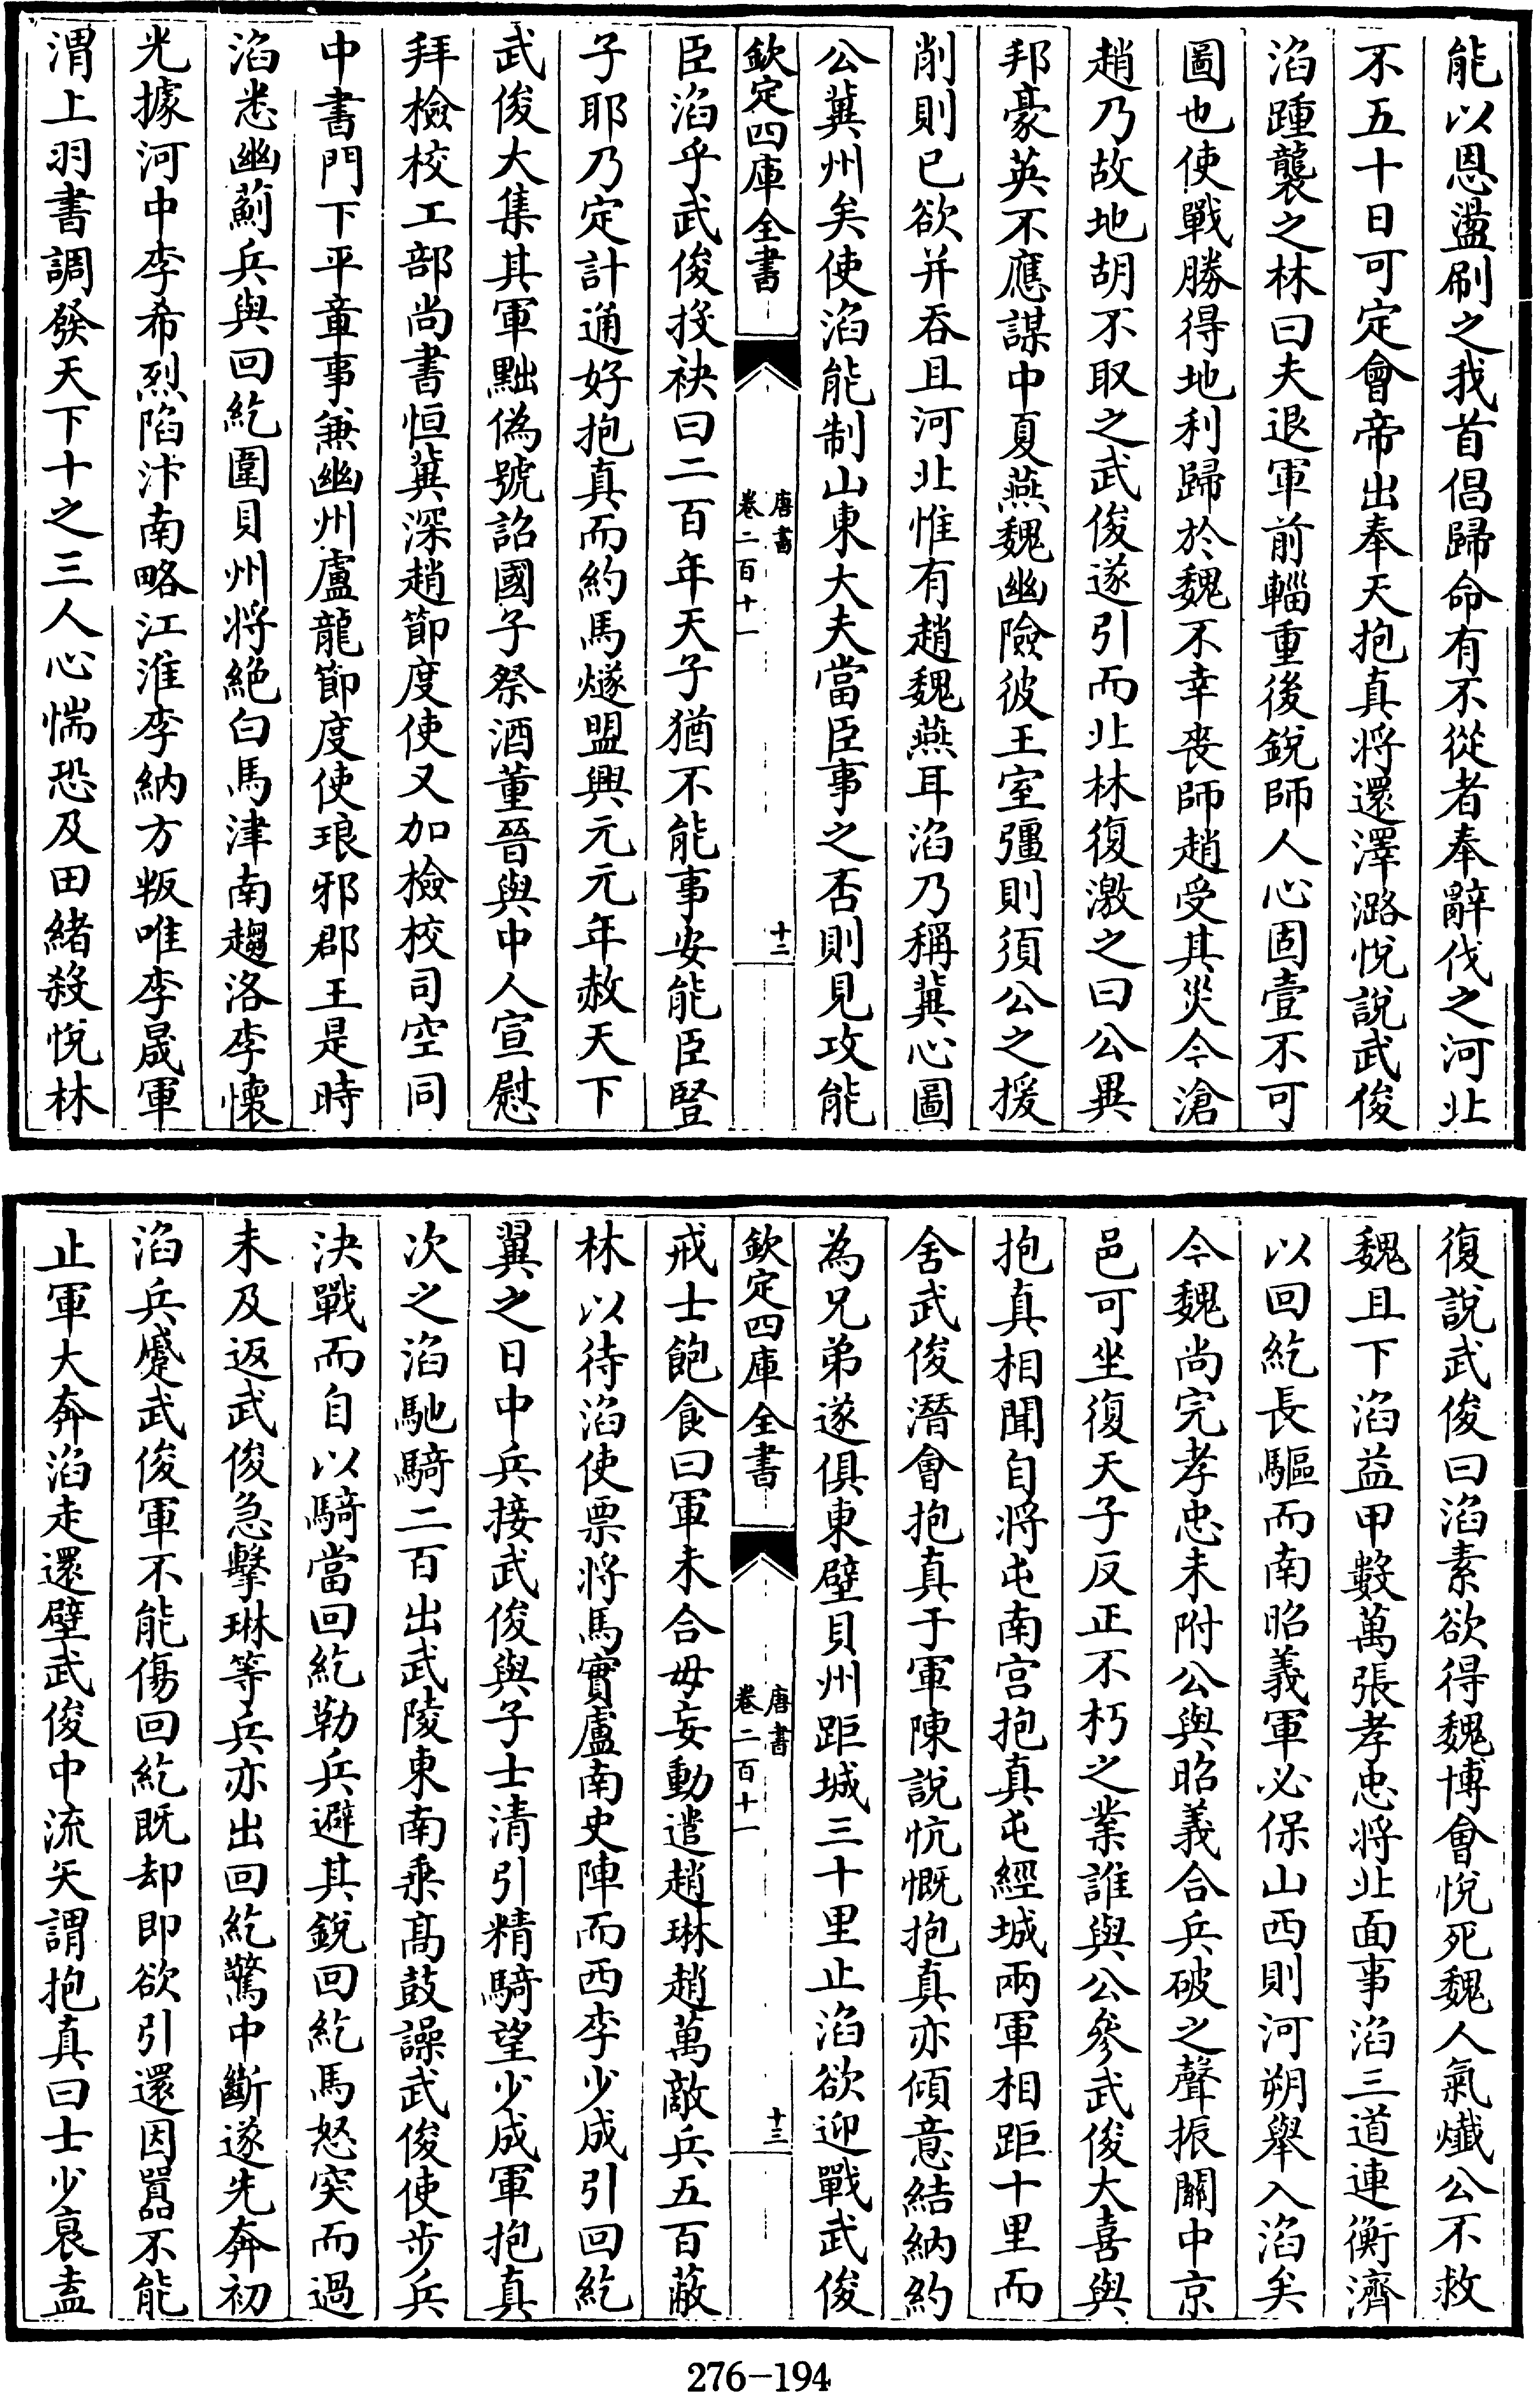 能以恩盪刷之我首倡歸命有不從者奉辭伐之河北
不五十日可定會帝出奉天抱真將還澤潞悅說武俊
滔踵襲之林曰夫退軍前輜重後銳師人心固壹不可
圖也使戰勝得地利歸於魏不幸喪師趙受其災今滄
趙乃故地胡不取之武俊遂引而北林復激之曰公異
邦豪英不應謀中夏燕魏幽險彼王室彊則須公之援
削則已欲并吞且河北惟有趙魏燕耳滔乃稱冀心圖
公冀州矣使滔能制山東大夫當臣事之否則見攻能
欽定四庫全書
唐書
卷二百十一
十二
臣滔乎武俊投袂曰二百年天子猶不能事安能臣豎
子耶乃定計通好抱真而約馬燧盟興元元年赦天下
武俊大集其軍黜偽號詔國子祭酒董晉與中人宣慰
拜檢校工部尚書恒冀深趙節度使又加檢校司空同
中書門下平章事兼幽州盧龍節度使琅邪郡王是時
滔悉幽薊兵與回紇圍貝州將絕白馬津南趨洛李懷
光據河中李希烈陷汴南略江淮李納方叛唯李晟軍
渭上羽書調發天下十之三人心惴恐及田緒殺悅林
復說武俊曰滔素欲得魏博會悅死魏人氣熸公不救
魏且下滔益甲數萬張孝忠將北面事滔三道連衡濟
以回紇長驅而南昭義軍必保山西則河朔舉入滔矣
今魏尚完孝忠未附公與昭義合兵破之聲振關中京
邑可坐復天子反正不朽之業誰與公參武俊大喜與
抱真相聞自將屯南宫抱真屯經城兩軍相距十里而
舍武俊潛會抱真于軍陳說忼慨抱真亦傾意結納約
為兄弟遂俱東壁貝州距城三十里止滔欲迎戰武俊
欽定四庫全書
唐書
卷二百十一
十三
戒士飽食曰軍未合毋妄動遣趙琳趙萬敵兵五百蔽
林以待滔使票將馬寔盧南史陣而西李少成引回紇
翼之日中兵接武俊與子士清引精騎望少成軍抱真
次之滔馳騎二百出武陵東南乘髙鼓譟武俊使步兵
決戰而自以騎當回紇勒兵避其銳回紇馬怒突而過
未及返武俊急擊琳等兵亦出回紇驚中斷遂先奔初
滔兵蹙武俊軍不能傷回紇既却即欲引還因囂不能
止軍大奔滔走還壁武俊中流矢謂抱真曰士少衰盍
276-194